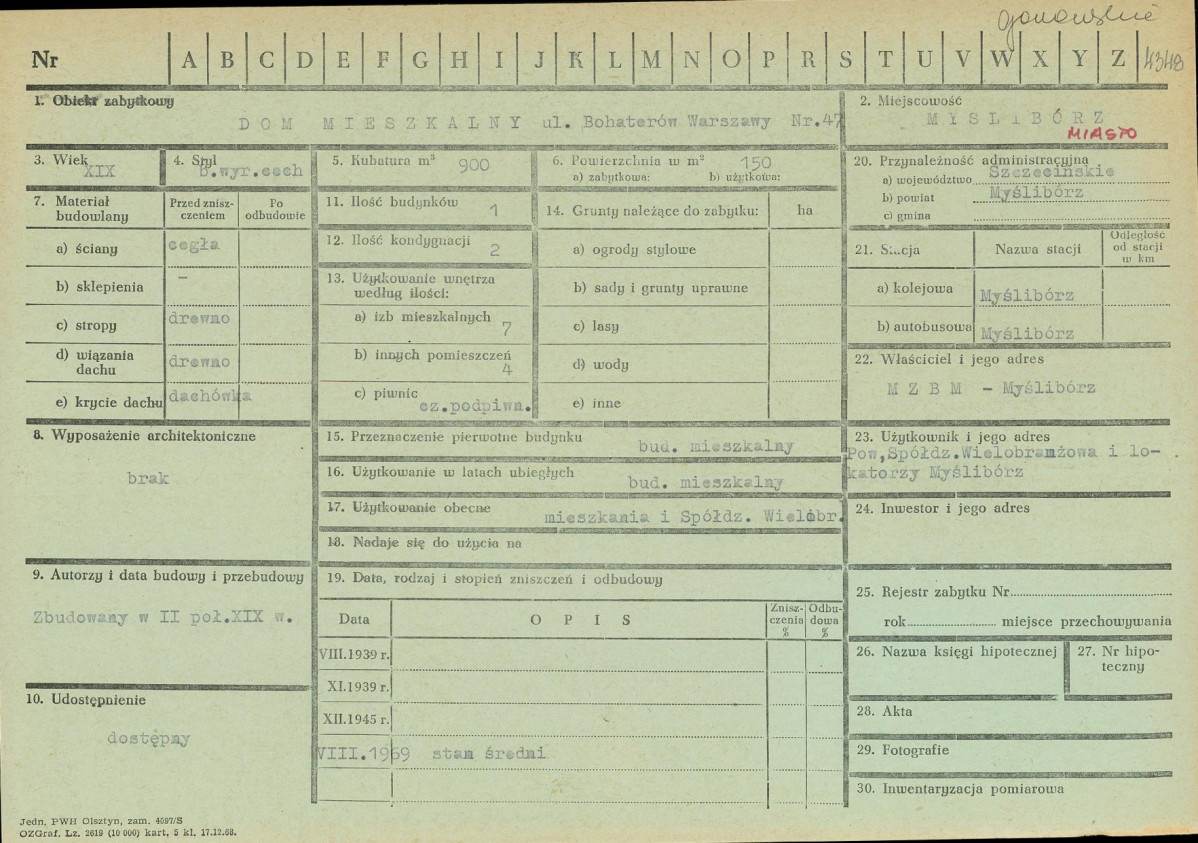 gorzowskie
Nr A B C D E F G H I J K L M N O P R S T U V W X Y Z 4348
1. Obiekt zabytkowy
DOM MIESZKALNY ul. Bohaterów Warszawy Nr.47
2. Miejscowość
MYŚLIBÓRZ
MIASTO
3. Wiek
XIX
4. Styl
B.wyr.cech
5. Kubatura m³ 900
6. Powierzchnia w m² 150
a) zabytkowa: b) użytkowa:
7. Materiał budowlany
Przed zniszczeniem
Po odbudowie
a) ściany cegła
b) sklepienia –
c) stropy drewno
d) wiązania dachu drewno
e) krycie dachu dachówka
8. Wyposażenie architektoniczne
brak
9. Autorzy i data budowy i przebudowy
Zbudowany w II poł.XIX w.
10. Udostępnienie
dostępny
11. Ilość budynków 1
12. Ilość kondygnacji 2
13. Użytkowanie wnętrza według ilości:
a) izb mieszkalnych 7
b) innych pomieszczeń 4
c) piwnic cz.podpiwn.
14. Grunty należące do zabytku: ha
a) ogrody stylowe
b) sady i grunty uprawne
c) lasy
d) wody
e) inne
15. Przeznaczenie pierwotne budynku bud. mieszkalny
16. Użytkowanie w latach ubiegłych bud. mieszkalny
17. Użytkowanie obecne mieszkania i Spółdz. Wielobr.
18. Nadaje się do użycia na
19. Data, rodzaj i stopień zniszczeń i odbudowy
Data OPIS Zniszczenia % Odbudowa %
VIII.1939 r.
XI.1939 r.
XII.1945 r.
VIII.1969 stan średni
20. Przynależność administracyjna
a) województwo Szczecińskie
b) powiat Myślibórz
c) gmina
21. Stacja Nazwa stacji Odległość od stacji w km
a) kolejowa Myślibórz
b) autobusowa Myślibórz
22. Właściciel i jego adres
M Z B M – Myślibórz
23. Użytkownik i jego adres
Pow,Spółdz.Wielobranżowa i lo-
katorzy Myślibórz
24. Inwestor i jego adres
25. Rejestr zabytku Nr
rok miejsce przechowywania
26. Nazwa księgi hipotecznej
27. Nr hipoteczny
28. Akta
29. Fotografie
30. Inwentaryzacja pomiarowa
Jedn. PWH Olsztyn, zam. 4097/S
OZGraf. Lz. 2619 (10 000) kart, 5 kl. 17.12.68.